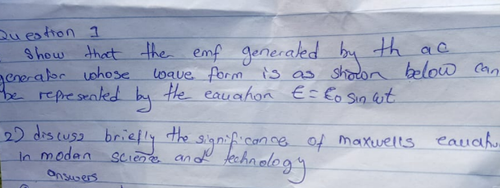 Question 1
Show that the emf generated by th ac
generator whose wave form is as shown below can
be represented by the eauation E = E₀ sin ωt
2) discuss briefly the significance of maxwells eauatio
in modan science and technology
answers